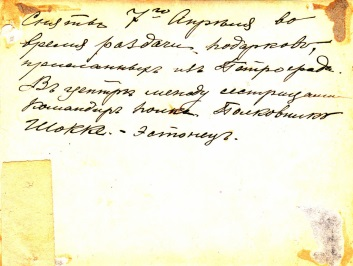 Снятъ 7го Апрѣля во
время раздачи подарковъ,
присланныхъ изъ Петрограда.
Въ центрѣ между сестрицами
Командиръ полка Полковникъ
Шокке. - Эстонецъ.